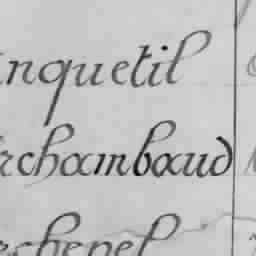 nquetil
rchambaud
rchenel